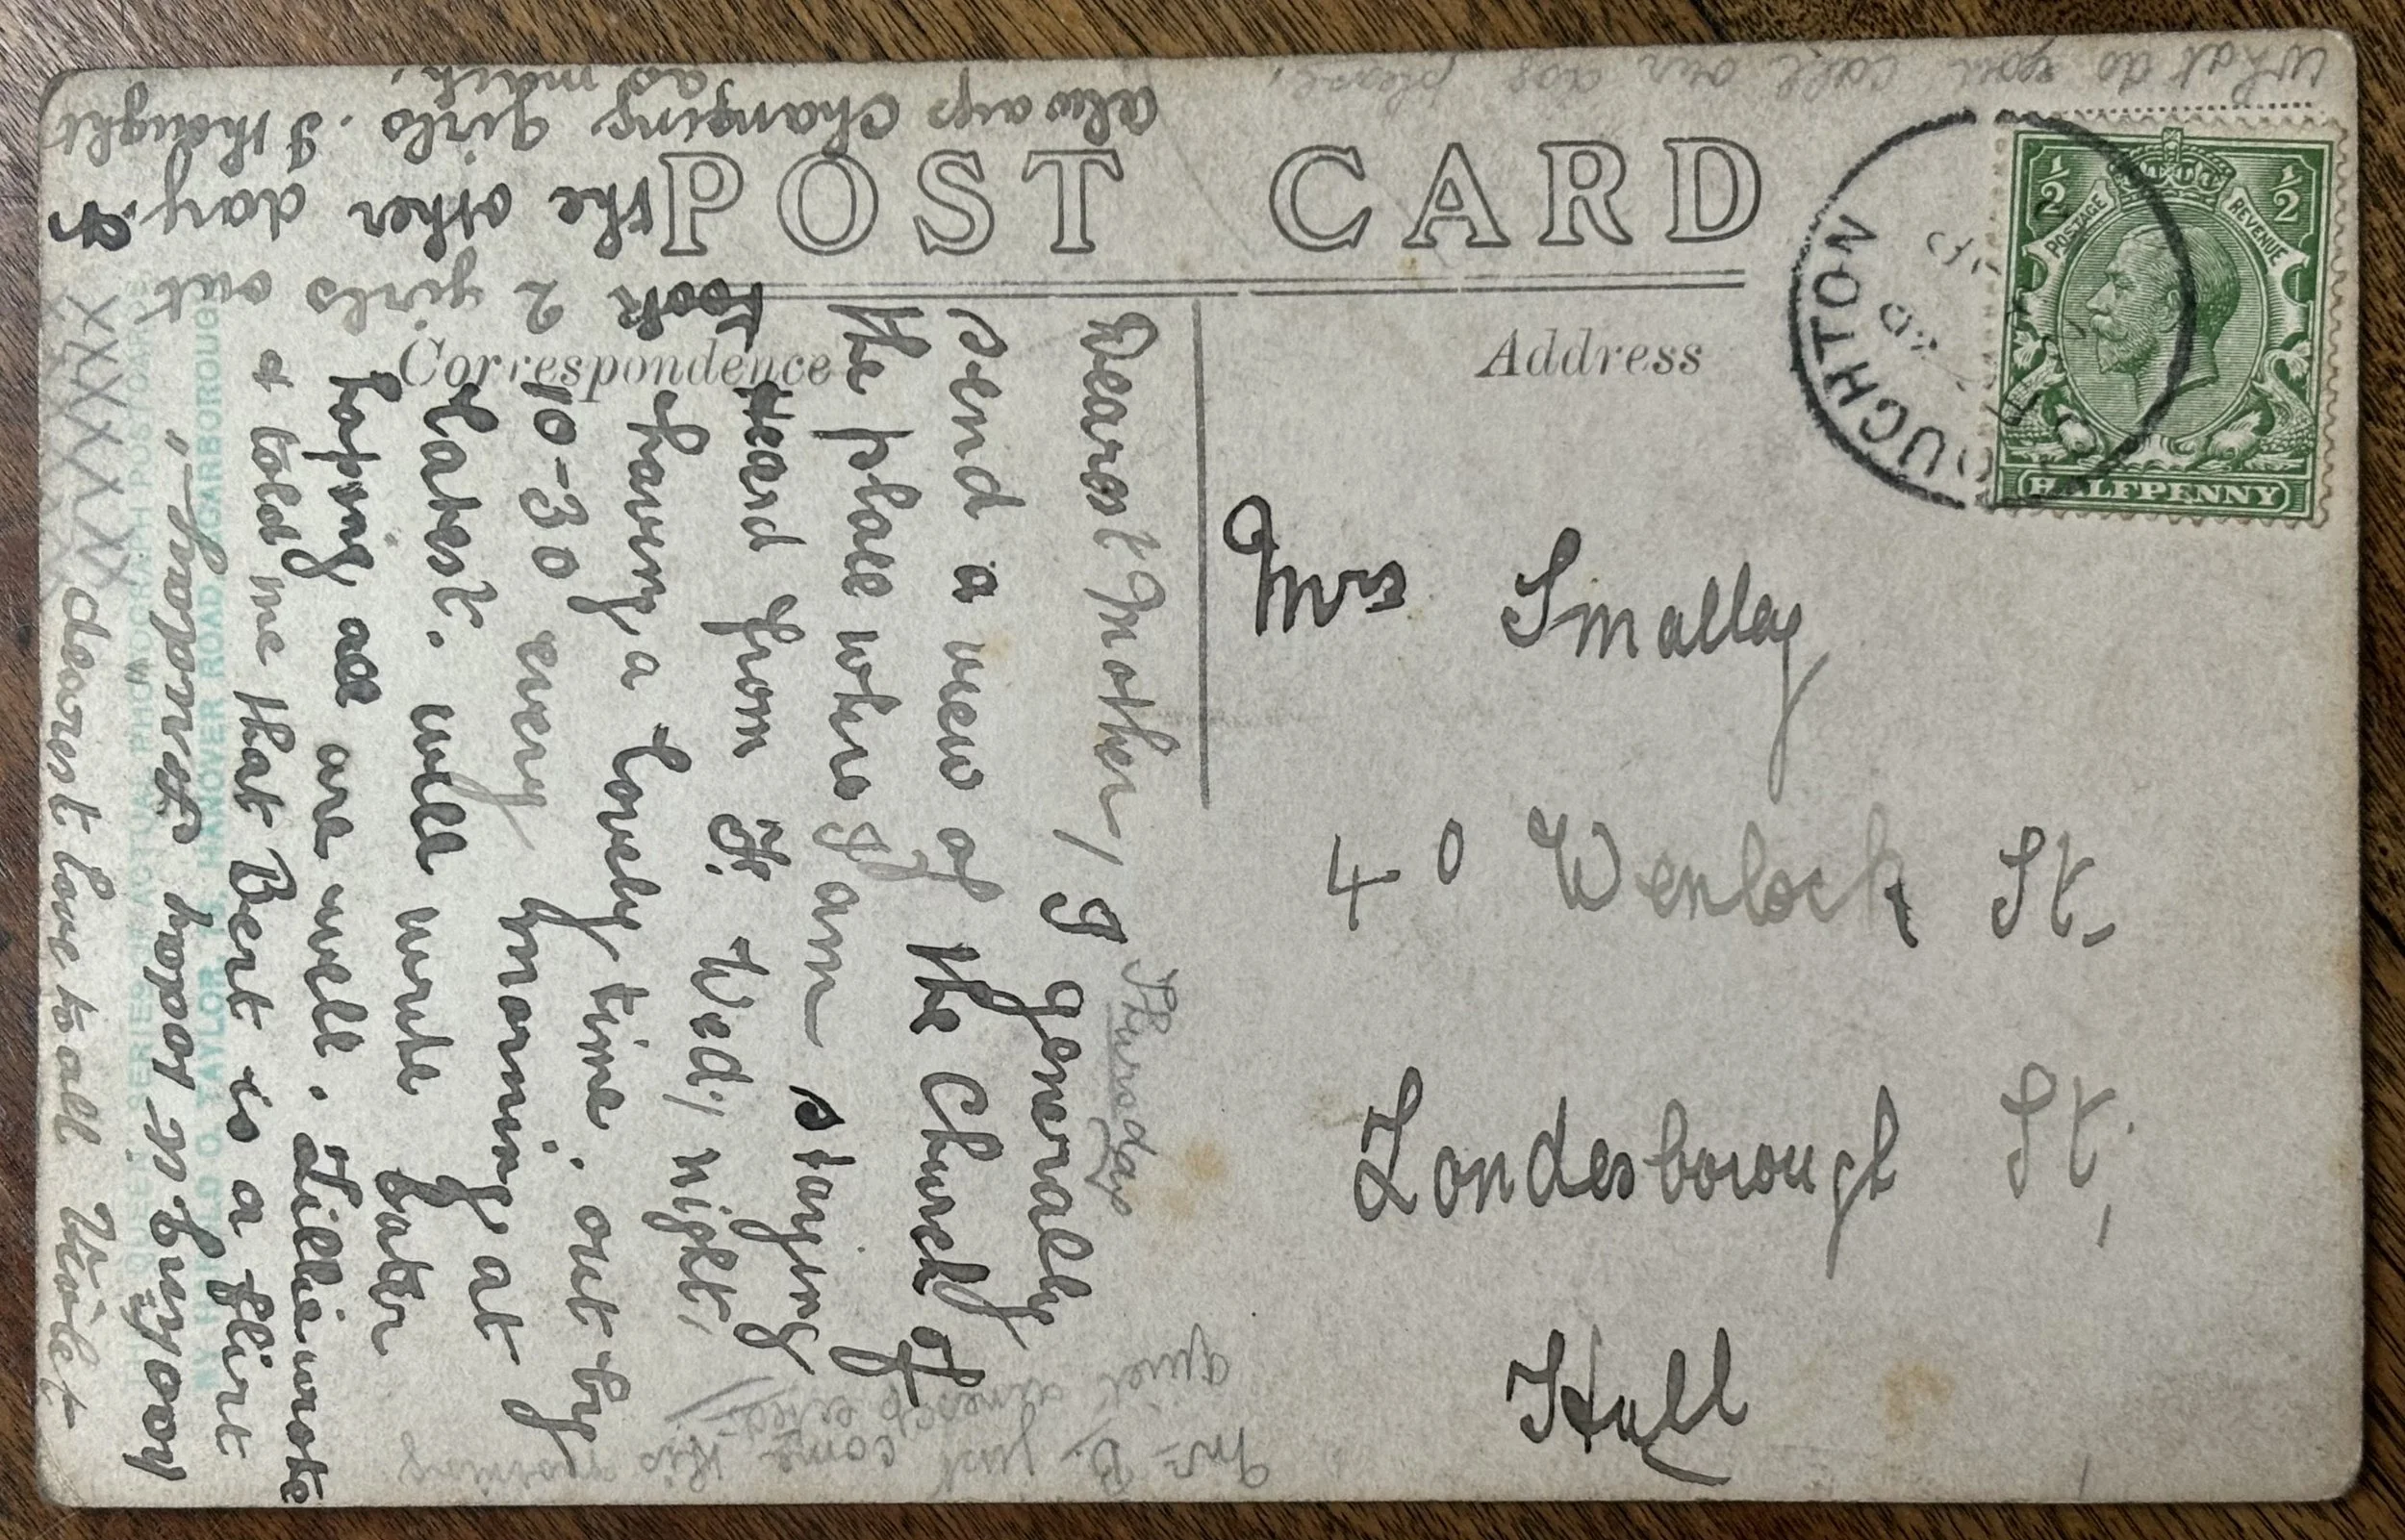 POST CARD
Correspondence
Address
½ ½
POSTAGE REVENUE
HALFPENNY
OUGHTON
Mrs Smalley
40 Wenlock St.
Londesborough St,
Hull
Thursday
Dearest Mother, I generally
send a view of the Church of
the place where I am staying
Heard from H. Wedy night,
having a lovely time, out by
10-30 every morning at
latest. will write later
hoping all are well. Lillie wrote
& told me that Bert is a flirt
dearest love to all Violet
XXXXXX
took 2 girls out
the other day. &
always changing girls. I thought
as much.
What do you call our dog please,
Mr B. just come this
quiet
SERIES OF ACTUAL PHOTOGRAPH POSTCARDS
TAYLOR, HANOVER ROAD, SCARBOROUGH